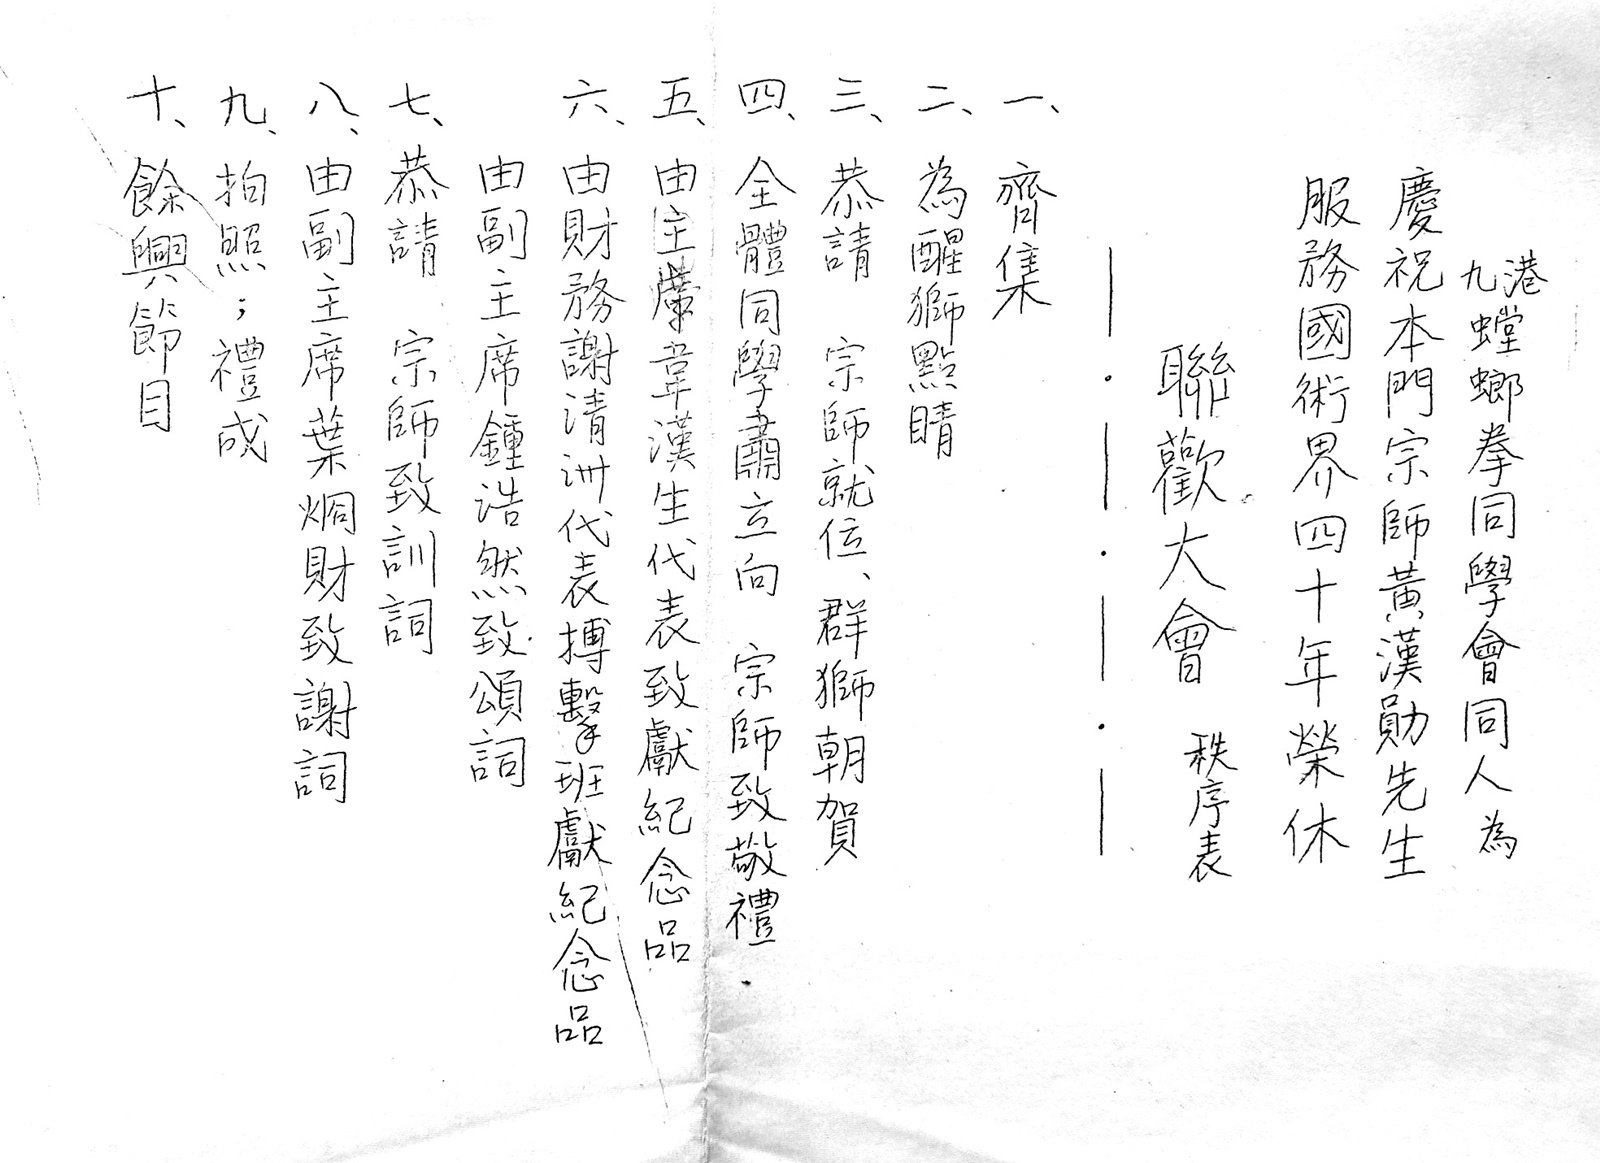 港九螳螂拳同學會同人為
慶祝本門宗師黃漢勛先生
服務國術界四十年榮休
聯歡大會 秩序表
一、齊集
二、為醒獅點睛
三、恭請 宗師就位、群獅朝賀
四、全體同學肅立向 宗師致敬禮
五、由主席韋漢生代表致獻紀念品
六、由財務謝清洲代表搏擊班獻紀念品
由副主席鍾浩然致頌詞
七、恭請 宗師致訓詞
八、由副主席葉烱財致謝詞
九、拍照；禮成
十、餘興節目